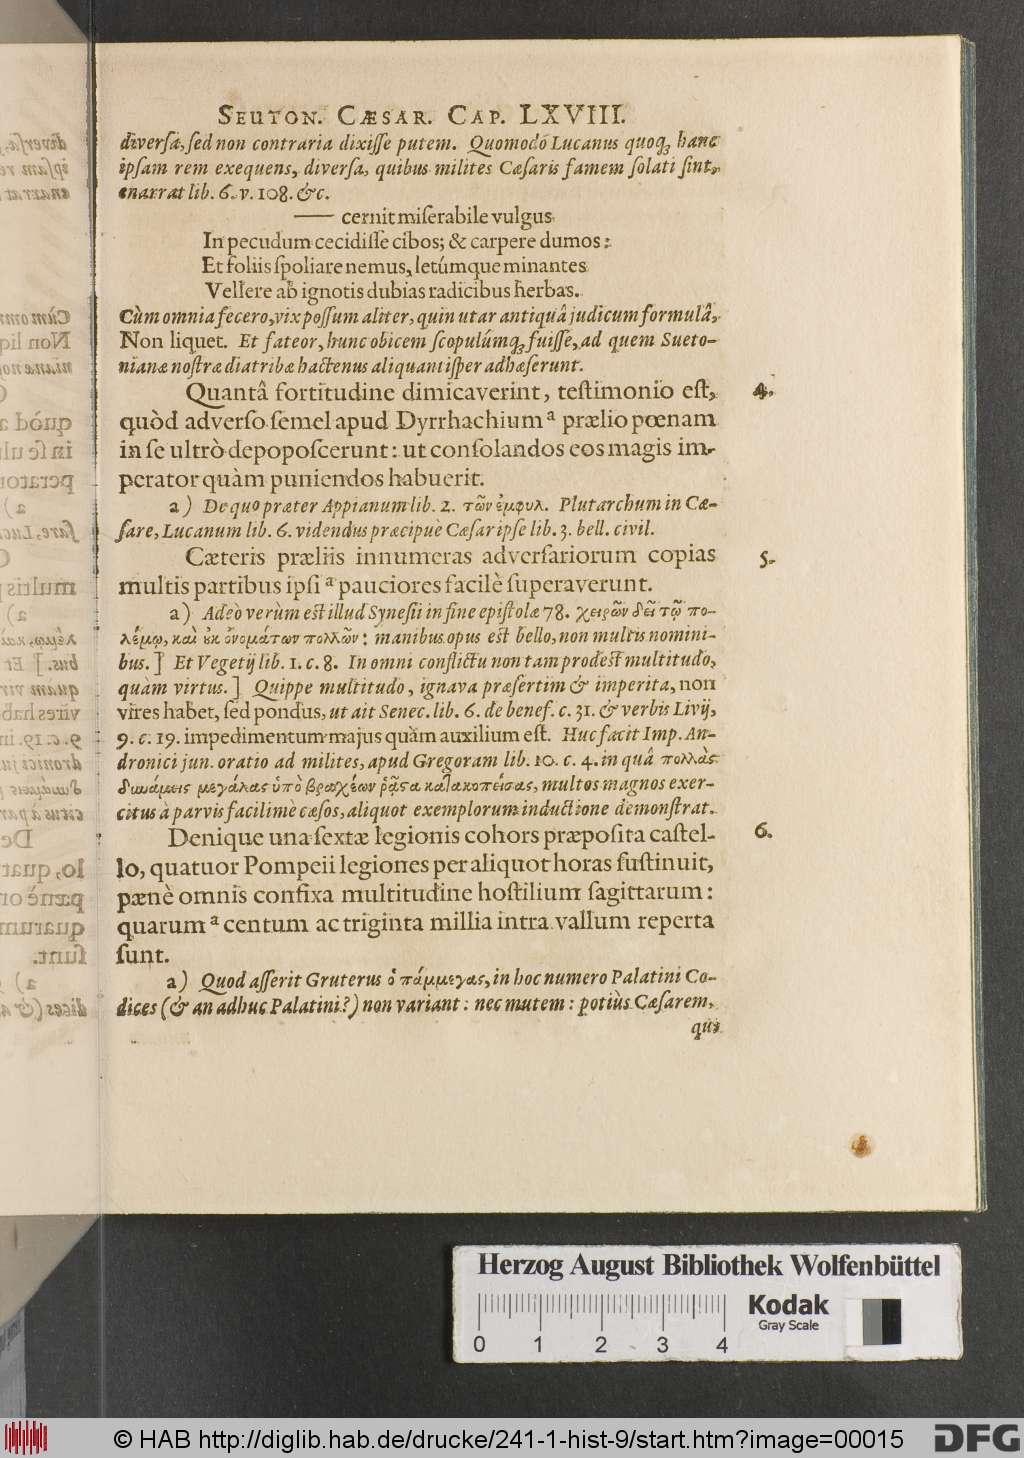 SEUTON. CÆSAR. CAP. LXVIII.
diversa, sed non contraria dixisse putem. Quomodó Lucanus quoq; hanc
ipsam rem exequens, diversa, quibus milites Cæsaris famem solati sint,
enarrat lib. 6. v. 108. &c.
—— cernit miserabile vulgus
In pecudum cecidisse cibos; & carpere dumos:
Et foliis spoliare nemus, letúmque minantes
Vellere ab ignotis dubias radicibus herbas.
Cùm omnia fecero, vix possum aliter, quin utar antiquâ judicum formulâ,
Non liquet. Et fateor, hunc obicem scopulúmq; fuisse, ad quem Sueto-
nianæ nostræ diatribæ hactenus aliquantisper adhæserunt.
Quantâ fortitudine dimicaverint, testimonio est, 4.
quòd adverso semel apud Dyrrhachium a prælio pœnam
in se ultrò depoposcerunt: ut consolandos eos magis im-
perator quàm puniendos habuerit.
a) De quo præter Appianum lib. 2. τῶν ἐμφυλ. Plutarchum in Cæ-
sare, Lucanum lib. 6. videndus præcipuè Cæsar ipse lib. 3. bell. civil.
Cæteris præliis innumeras adversariorum copias 5.
multis partibus ipsi a pauciores facilè superaverunt.
a) Adeò verùm est illud Synesii in fine epistolæ 78. χειρῶν δεῖ τῷ πο-
λέμῳ, καὶ ȣκ ὀνομάτων πολλῶν: manibus opus est bello, non multis nomini-
bus.] Et Vegetij lib. 1. c. 8. In omni conflictu non tam prodest multitudo,
quàm virtus.] Quippe multitudo, ignava præsertim & imperita, non
vires habet, sed pondus, ut ait Senec. lib. 6. de benef. c. 31. & verbis Livij,
9. c. 19. impedimentum majus quàm auxilium est. Huc facit Imp. An-
dronici jun. oratio ad milites, apud Gregoram lib. 10. c. 4. in quâ πολλὰς
δυνάμεις μεγάλας ὑπὸ βραχέων ῥᾷστα κατακοπείσας, multos magnos exer-
citus à parvis facilimè cæsos, aliquot exemplorum inductione demonstrat.
Denique una sextæ legionis cohors præposita castel- 6.
lo, quatuor Pompeii legiones per aliquot horas sustinuit,
pænè omnis confixa multitudine hostilium sagittarum:
quarum a centum ac triginta millia intra vallum reperta
sunt.
a) Quod asserit Gruterus ὁ πάμμεγας, in hoc numero Palatini Co-
dices (& an adhuc Palatini?) non variant: nec mutem: potius Cæsarem,
qui
Herzog August Bibliothek Wolfenbüttel
Kodak
Gray Scale
0 1 2 3 4
© HAB http://diglib.hab.de/drucke/241-1-hist-9/start.htm?image=00015
DFG